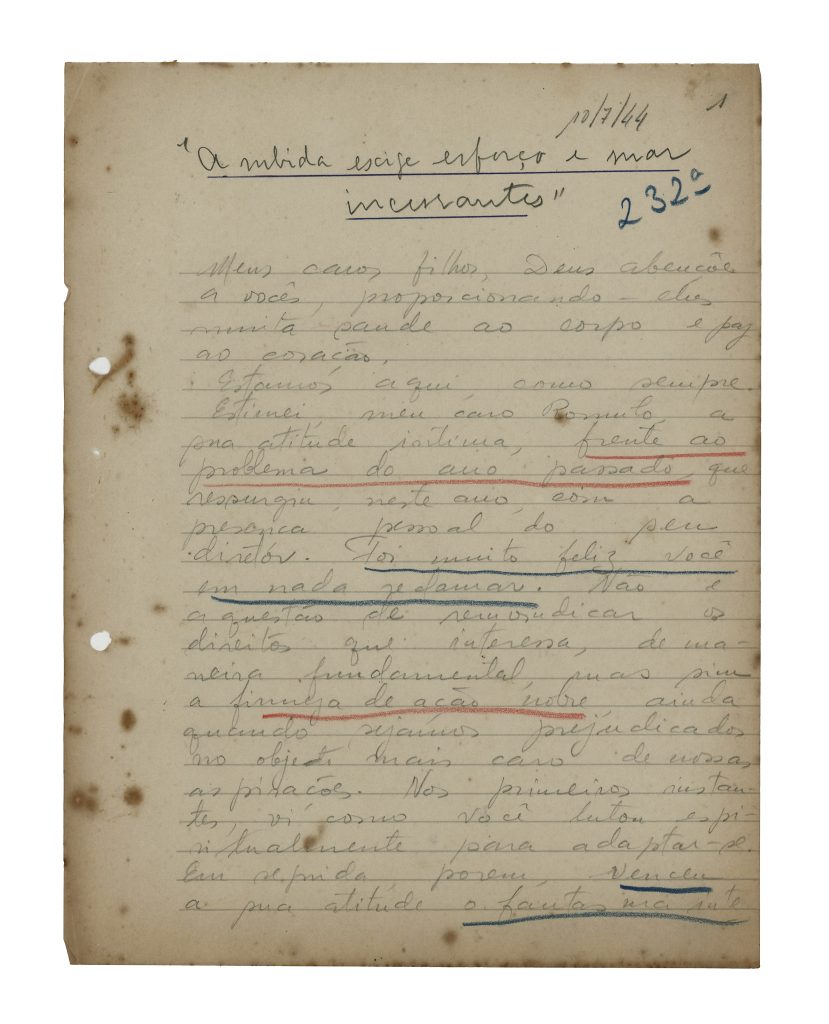 10/7/44 1
"A subida exige esforço e suor
incessantes"
232ª
Meus caros filhos, Deus abençôe
a vocês, proporcionando-lhes
muita saude ao corpo e paz
ao coração.
Estamos aqui como sempre.
Estimei, meu caro Romulo, a
sua atitude intima, frente ao
problema do ano passado, que
ressurgiu, neste ano, com a
presença pessoal do seu
diretor. Foi muito feliz você
em nada reclamar. Não é
a questão de reivindicar os
direitos que interessa, de ma-
neira fundamental, mas sim
a firmeza de ação nobre, ainda
quando sejamos prejudicados
no objeto mais caro de nossas
aspirações. Nos primeiros instan-
tes, vi como você lutou espi-
ritualmente para adaptar-se.
Em seguida, porem, venceu
a sua atitude o fantasma inte